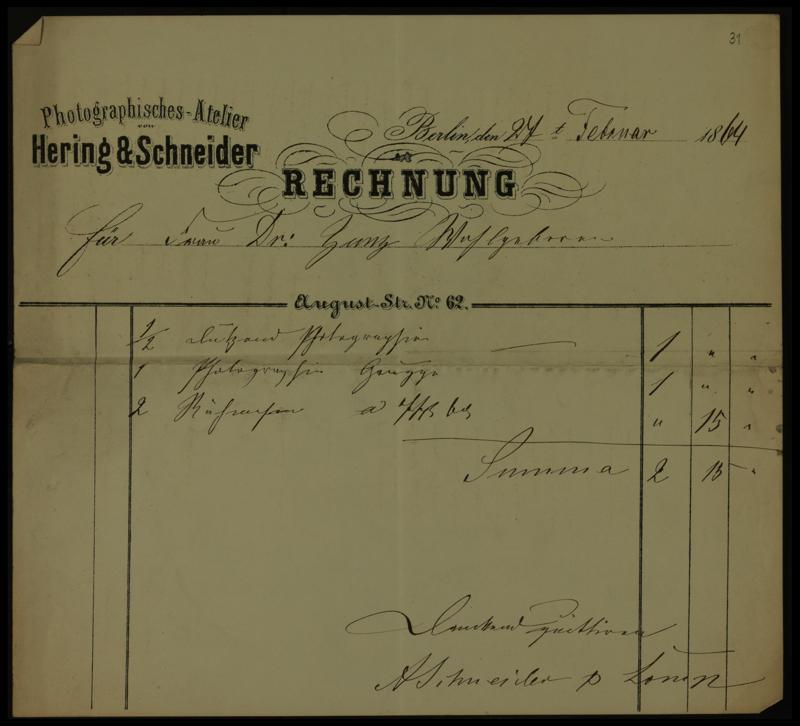 31
Photographisches-Atelier
von
Hering & Schneider
Berlin, den 27t Februar 1864
RECHNUNG
für Frau Dr: Zunz Wohlgeboren
August-Str. No. 62.
1/2 Dutzend Photographien 1 " "
1 Photographie Gruppe 1 " "
2 Rähmchen a 7 1/2 " 15 "
Summa 2 15 "
Dankend quittiren
A Schneider